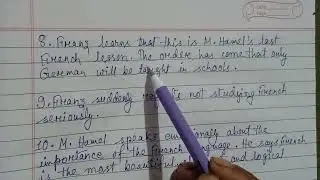 8. Franz learns that this is M. Hamel's last
French lesson. The orders has come that only
German will be taught in schools.
9. Franz suddenly not studying French
seriously.
10. M. Hamel speaks emotionally about the
importance of the French language. He says French
is the most beautiful and logical